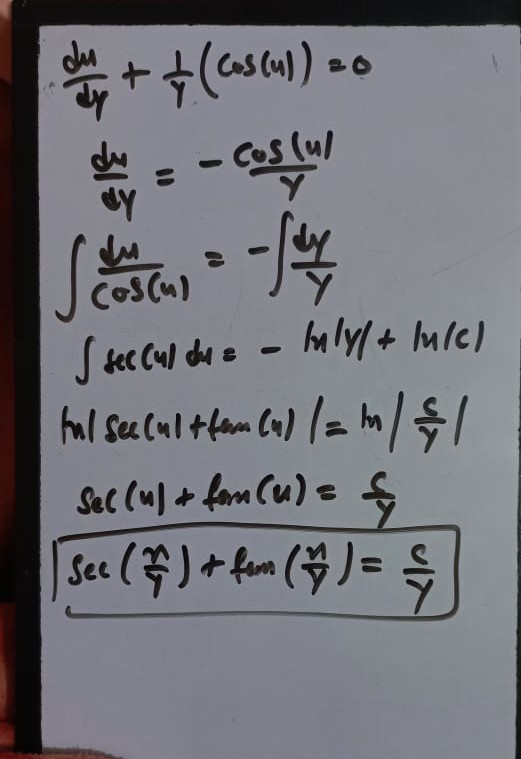 du/dy + 1/y (cos(u)) = 0
du/dy = - cos(u)/y
∫ du/cos(u) = - ∫ dy/y
∫ sec(u) du = - ln|y| + ln(c)
ln| sec(u) + tan(u) | = ln | c/y |
sec(u) + tan(u) = c/y
sec (x/y) + tan (x/y) = c/y